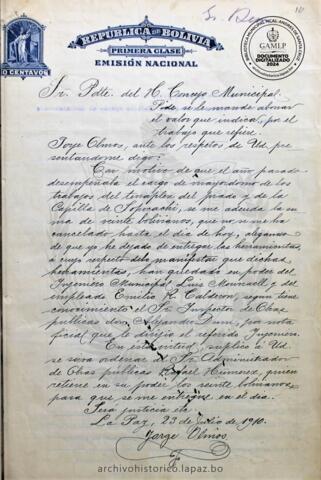 REPUBLICA DE BOLIVIA
PRIMERA CLASE
EMISIÓN NACIONAL
O CENTAVOS
BIBLIOTECA MUNICIPAL ANDRÉS DE SANTA CRUZ
GAMLP
DOCUMENTO
DIGITALIZADO
2024
Sr. Pdte. del H. Concejo Municipal.
Pide se le mande abonar
el valor que indica, por el
trabajo que refiere.
Jorge Olmos, ante los respetos de Ud. pre
sentandome digo:
Con motivo de que el año pasado
desempeñaba el cargo de mayordomo de los
trabajos del timaplex del Prado y de la
Capilla de Sopocachi, se me adeuda la su
ma de veinte bolivianos, que no se me ha
cancelado hasta el día de hoy, alegando
de que yo he dejado de entregar las herramientas,
a cuyo respecto debo manifestar que dichas
herramientas, han quedado en poder del
Ingeniero Municipal Luis Mounsell y del
empleado Emilio K. Calderon, segun tiene
conocimiento el Sr. Inspector de Obras
públicas don Alejandro Dunn, por nota
oficial que le dirijió el referido Ingeniero.
En esta virtud, suplico á Ud.
se sirva ordenar al Sr. Administrador
de Obras públicas Rafael Himenez, quien
retiene en su poder los veinte bolivianos
para que se me entregue en el día.
Será justicia etc
La Paz, 23 de Julio de 1910.
Jorge Olmos.
archivohistorico.lapaz.bo